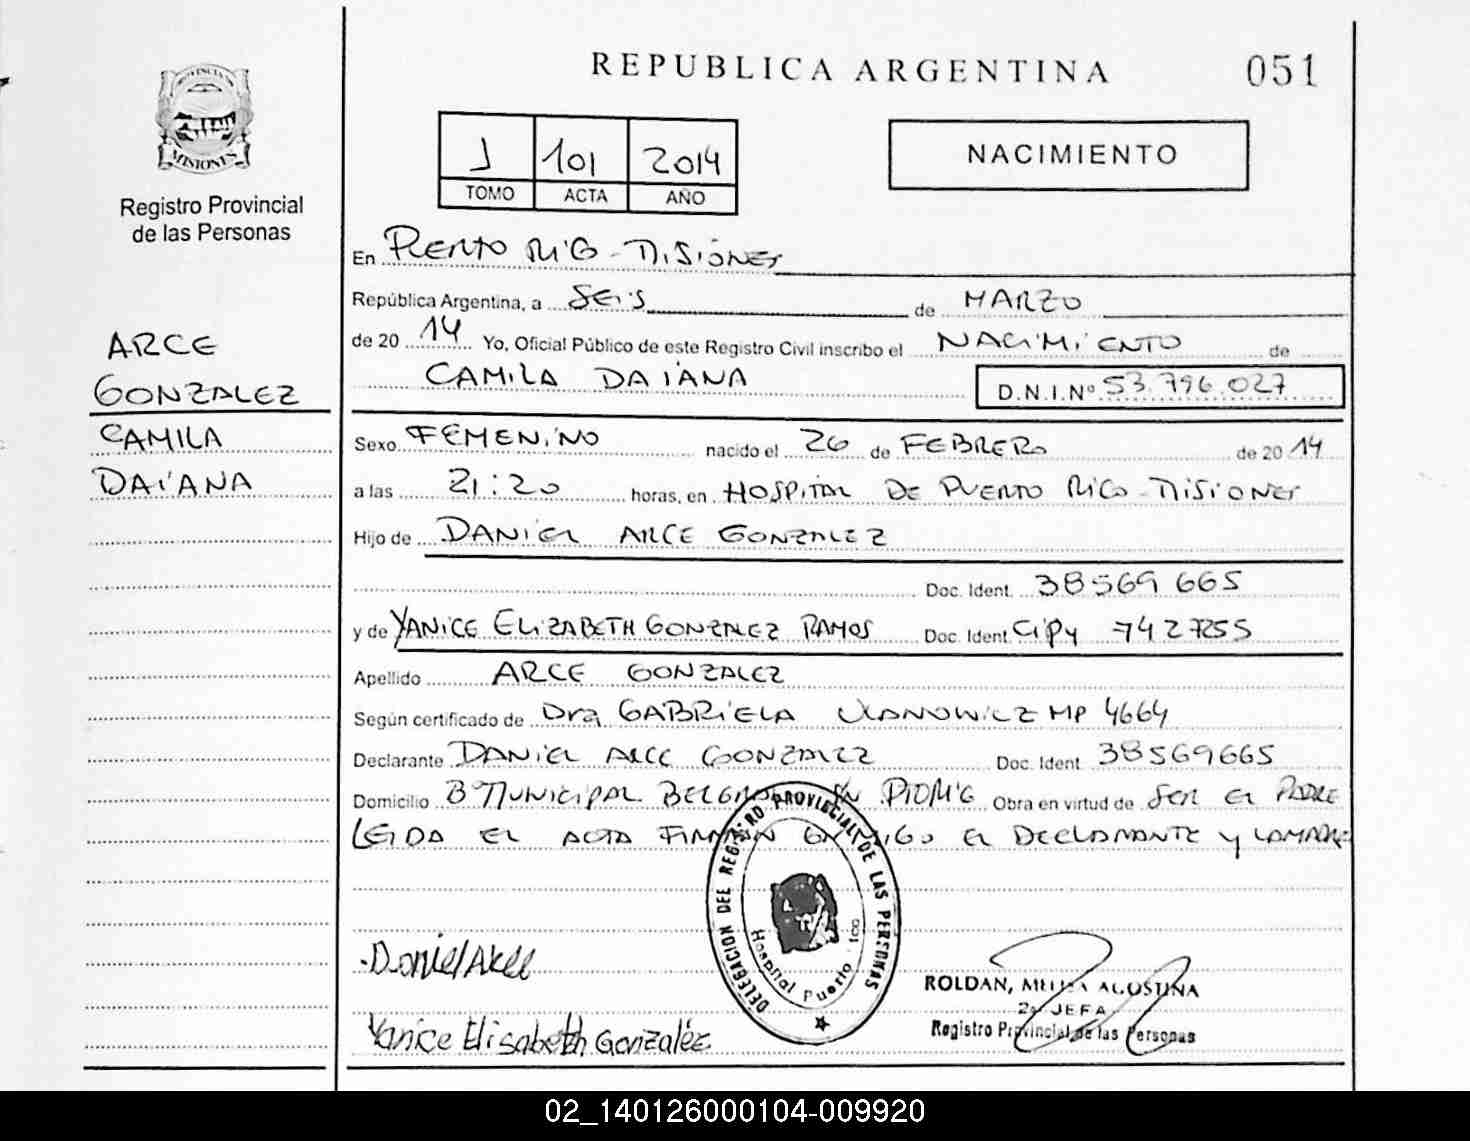 REPUBLICA ARGENTINA
051
PROVINCIA DE
MISIONES
Registro Provincial
de las Personas
ARCE
GONZALEZ
CAMILA
DAIANA
J 101 2014
TOMO ACTA AÑO
NACIMIENTO
En PUERTO RICO - MISIONES
República Argentina, a SEIS de MARZO
de 20 14 Yo, Oficial Público de este Registro Civil inscribo el NACIMIENTO de
CAMILA DAIANA D.N.I.Nº 53.796.027
Sexo FEMENINO nacido el 26 de FEBRERO de 20 14
a las 21:20 horas, en HOSPITAL DE PUERTO RICO - MISIONES
Hijo de DANIEL ARCE GONZALEZ
Doc. Ident. 38569665
y de YANICE ELIZABETH GONZALEZ RAMOS Doc. Ident CIPY 7427255
Apellido ARCE GONZALEZ
Según certificado de Dra GABRIELA ULANOWICZ MP 4664
Declarante DANIEL ARCE GONZALEZ Doc. Ident 38569665
Domicilio Bº MUNICIPAL BELGRANO SN PTO RICO Obra en virtud de SER EL PADRE
LEIDA EL ACTA FIRMAN CONMIGO EL DECLARANTE Y LA MADRE
DELEGACION DEL REGISTRO PROVINCIAL DE LAS PERSONAS
Hospital Puerto Rico
Daniel Arce
Yanice Elisabeth Gonzalez
ROLDAN, AGOSTINA
2º JEFA
Registro Provincial de las Personas
02_140126000104-009920